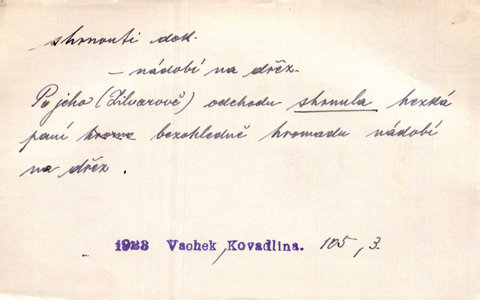 shrnouti dok.
– nádobí na dřez.
Po jeho (Zilvarově) odchodu shrnula hezká
paní bezohledně hromadu nádobí
na dřez.
1923 Vachek, Kovadlina. 105, 3.